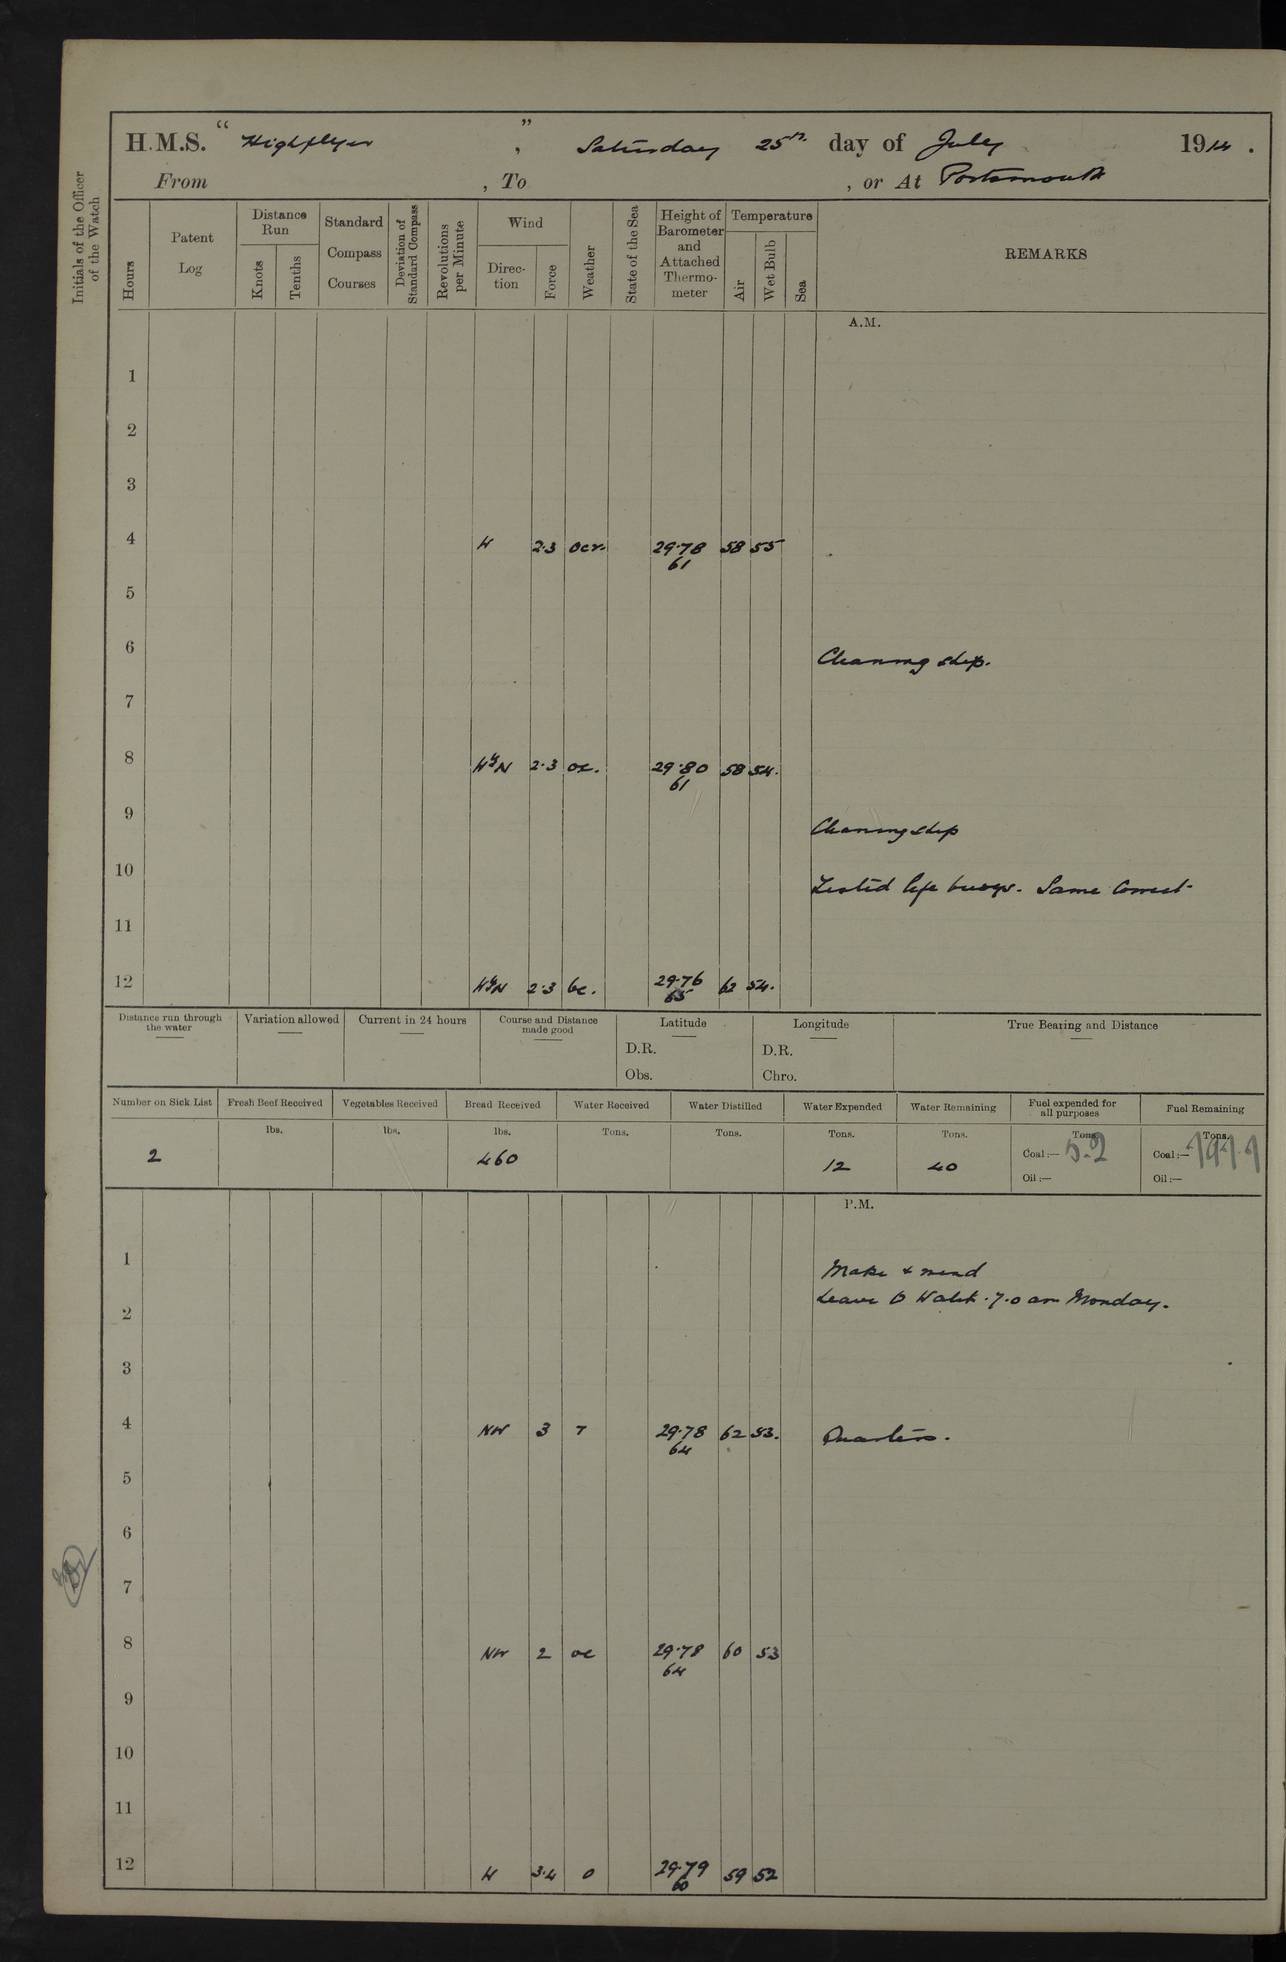 H.M.S. “ Highflyer ”, Saturday 25th day of July 1914.
From , To , or At Portsmouth
Initials of the Officer of the Watch
Hours
Patent Log
Distance Run
Knots
Tenths
Standard Compass Courses
Deviation of Standard Compass
Revolutions per Minute
Wind
Direc-tion
Force
Weather
State of the Sea
Height of Barometer and Attached Thermo-meter
Temperature
Air
Wet Bulb
Sea
REMARKS
A.M.
1
2
3
4 W 2·3 ocr. 29·78 58 55
61
5
6 Cleaning ship.
7
8 WyN 2·3 oc. 29·80 58 54.
61
9 Cleaning ship
10 Tested life buoys. Same Correct.
11
12 WyN 2·3 bc. 29·76 62 54.
65
Distance run through the water
Variation allowed
Current in 24 hours
Course and Distance made good
Latitude
D.R.
Obs.
Longitude
D.R.
Chro.
True Bearing and Distance
Number on Sick List
Fresh Beef Received
Vegetables Received
Bread Received
Water Received
Water Distilled
Water Expended
Water Remaining
Fuel expended for all purposes
Fuel Remaining
lbs. lbs. lbs. Tons. Tons. Tons. Tons. Tons. Tons.
2 460 12 40 Coal:— 5.2 Coal:—
Oil:— Oil:—
P.M.
1 Make & mend
2 Leave to Watch. 7.0 am Monday.
3
4 NW 3 r 29·78 62 53. Quarters.
64
5
6
7
8 NW 2 oc 29·78 60 53
64
9
10
11
12 W 3·4 o 29·79 59 52
60